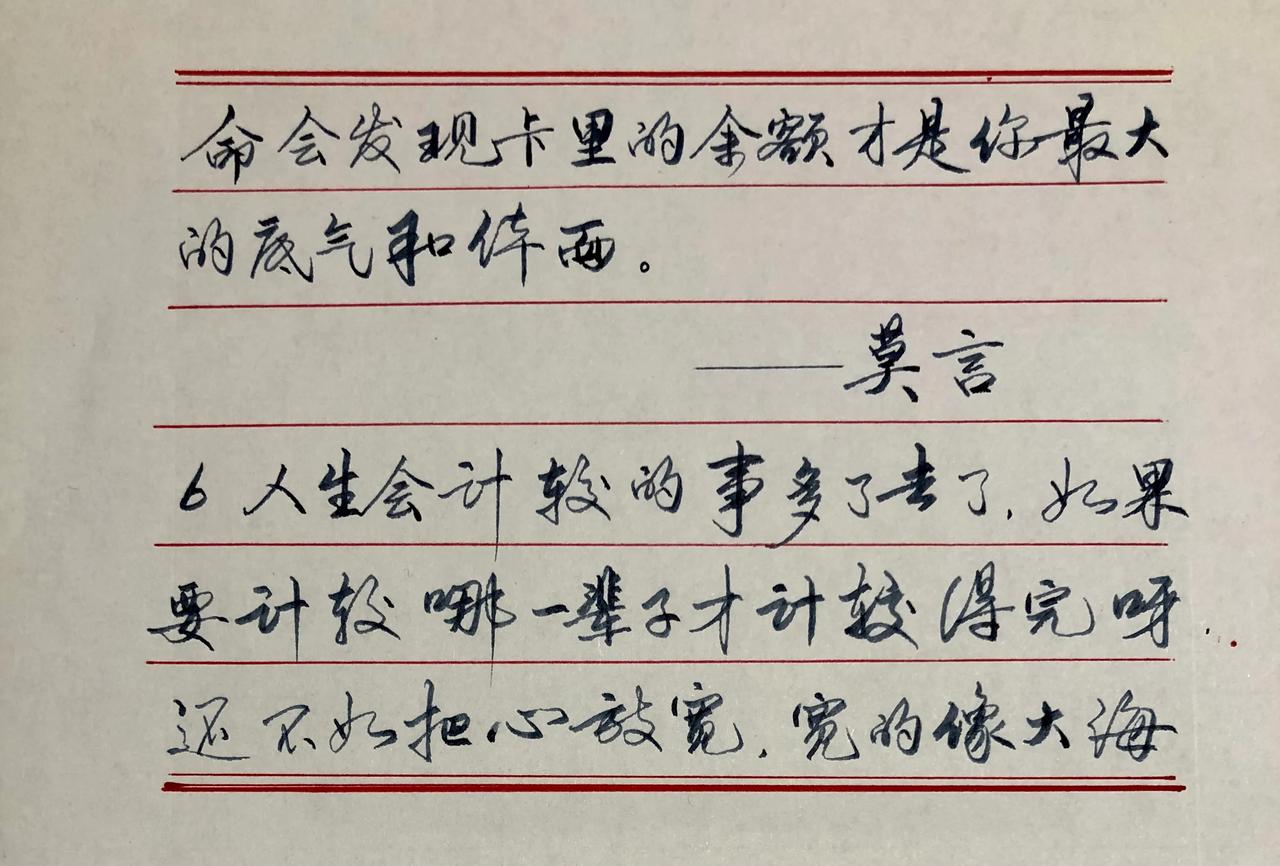 命会发现卡里的余额才是你最大
的底气和体面。
——莫言
6 人生会计较的事多了去了,如果
要计较哪一辈子才计较得完呀.
还不如把心放宽,宽的像大海